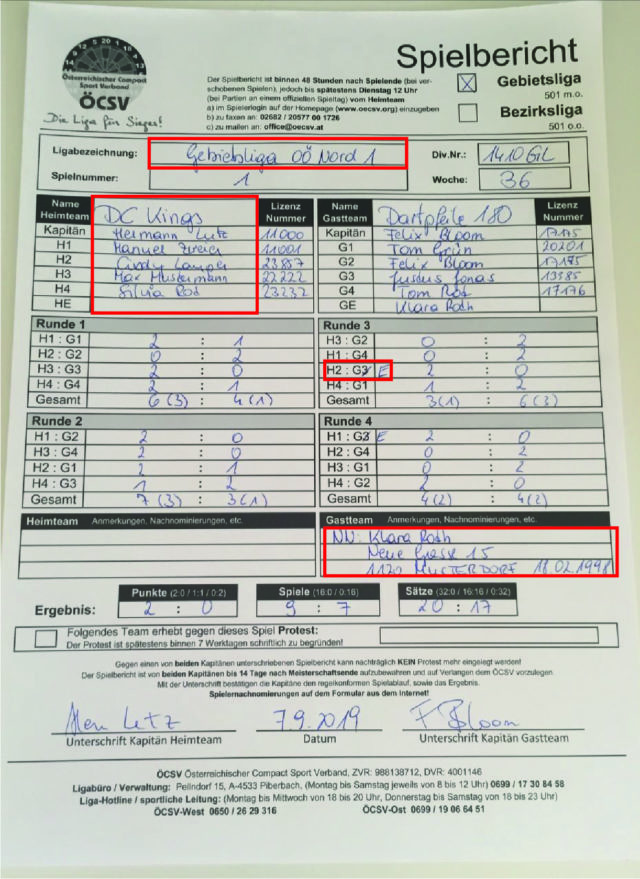 Österreichischer Compact
Sport Verband
ÖCSV
Die Liga für Sieger!
Spielbericht
Der Spielbericht ist binnen 48 Stunden nach Spielende (bei ver-
schobenen Spielen), jedoch bis spätestens Dienstag 12 Uhr
(bei Partien an einem offiziellen Spieltag) vom Heimteam
a) im Spielerlogin auf der Homepage (www.oecsv.org) einzugeben
b) zu faxen an: 02682 / 20577 00 1726
c) zu mailen an: office@oecsv.at
X Gebietsliga
501 m.o.
Bezirksliga
501 o.o.
Ligabezeichnung: Gebietsliga OÖ Nord 1 Div.Nr.: 1410GL
Spielnummer: 1 Woche: 36
Name Heimteam DC Kings Lizenz Nummer Name Gastteam Dartpfeile 180 Lizenz Nummer
Kapitän Hermann Lutz 11000 Kapitän Felix Bloom 17175
H1 Manuel 11001 G1 Tom Grün 20201
H2 Cindy 23857 G2 Felix Bloom 17175
H3 Max Mustermann 22222 G3 Justus Jonas 13585
H4 Silvia Rot 23232 G4 Tom Rot 17176
HE GE Klara Roth
Runde 1 Runde 3
H1 : G1 2 : 1 H3 : G2 0 : 2
H2 : G2 0 : 2 H1 : G4 0 : 2
H3 : G3 2 : 0 H2 : G3 E 2 : 0
H4 : G4 2 : 1 H4 : G1 1 : 2
Gesamt 6(3) : 4(1) Gesamt 3(1) : 6(3)
Runde 2 Runde 4
H1 : G2 2 : 0 H1 : G3 E 2 : 0
H3 : G4 2 : 0 H2 : G4 0 : 2
H2 : G1 2 : 1 H3 : G1 0 : 2
H4 : G3 1 : 2 H4 : G2 2 : 0
Gesamt 7(3) : 3(1) Gesamt 4(2) : 4(2)
Heimteam Anmerkungen, Nachnominierungen, etc. Gastteam Anmerkungen, Nachnominierungen, etc.
NN: Klara Roth
Neue Gasse 15
1120 MUSTERDORF 18.02.1998
Punkte (2:0 / 1:1 / 0:2) Spiele (16:0 / 0:16) Sätze (32:0 / 16:16 / 0:32)
Ergebnis: 2 : 0 9 : 7 20 : 17
Folgendes Team erhebt gegen dieses Spiel Protest:
Der Protest ist spätestens binnen 7 Werktagen schriftlich zu begründen!
Gegen einen von beiden Kapitänen unterschriebenen Spielbericht kann nachträglich KEIN Protest mehr eingelegt werden!
Der Spielbericht ist von beiden Kapitänen bis 14 Tage nach Meisterschaftsende aufzubewahren und auf Verlangen dem ÖCSV vorzulegen.
Mit der Unterschrift bestätigen die Kapitäne den regelkonformen Spielablauf, sowie das Ergebnis.
Spielernachnomierungen auf dem Formular aus dem Internet!
7.9.2019 F. Bloom
Unterschrift Kapitän Heimteam Datum Unterschrift Kapitän Gastteam
ÖCSV Österreichischer Compact Sport Verband, ZVR: 988138712, DVR: 4001146
Ligabüro / Verwaltung: Pellndorf 15, A-4533 Piberbach, (Montag bis Samstag jeweils von 8 bis 12 Uhr) 0699 / 17 30 84 58
Liga-Hotline / sportliche Leitung: (Montag bis Mittwoch von 18 bis 20 Uhr, Donnerstag bis Samstag von 18 bis 23 Uhr)
ÖCSV-West 0650 / 26 29 316 ÖCSV-Ost 0699 / 19 06 64 51